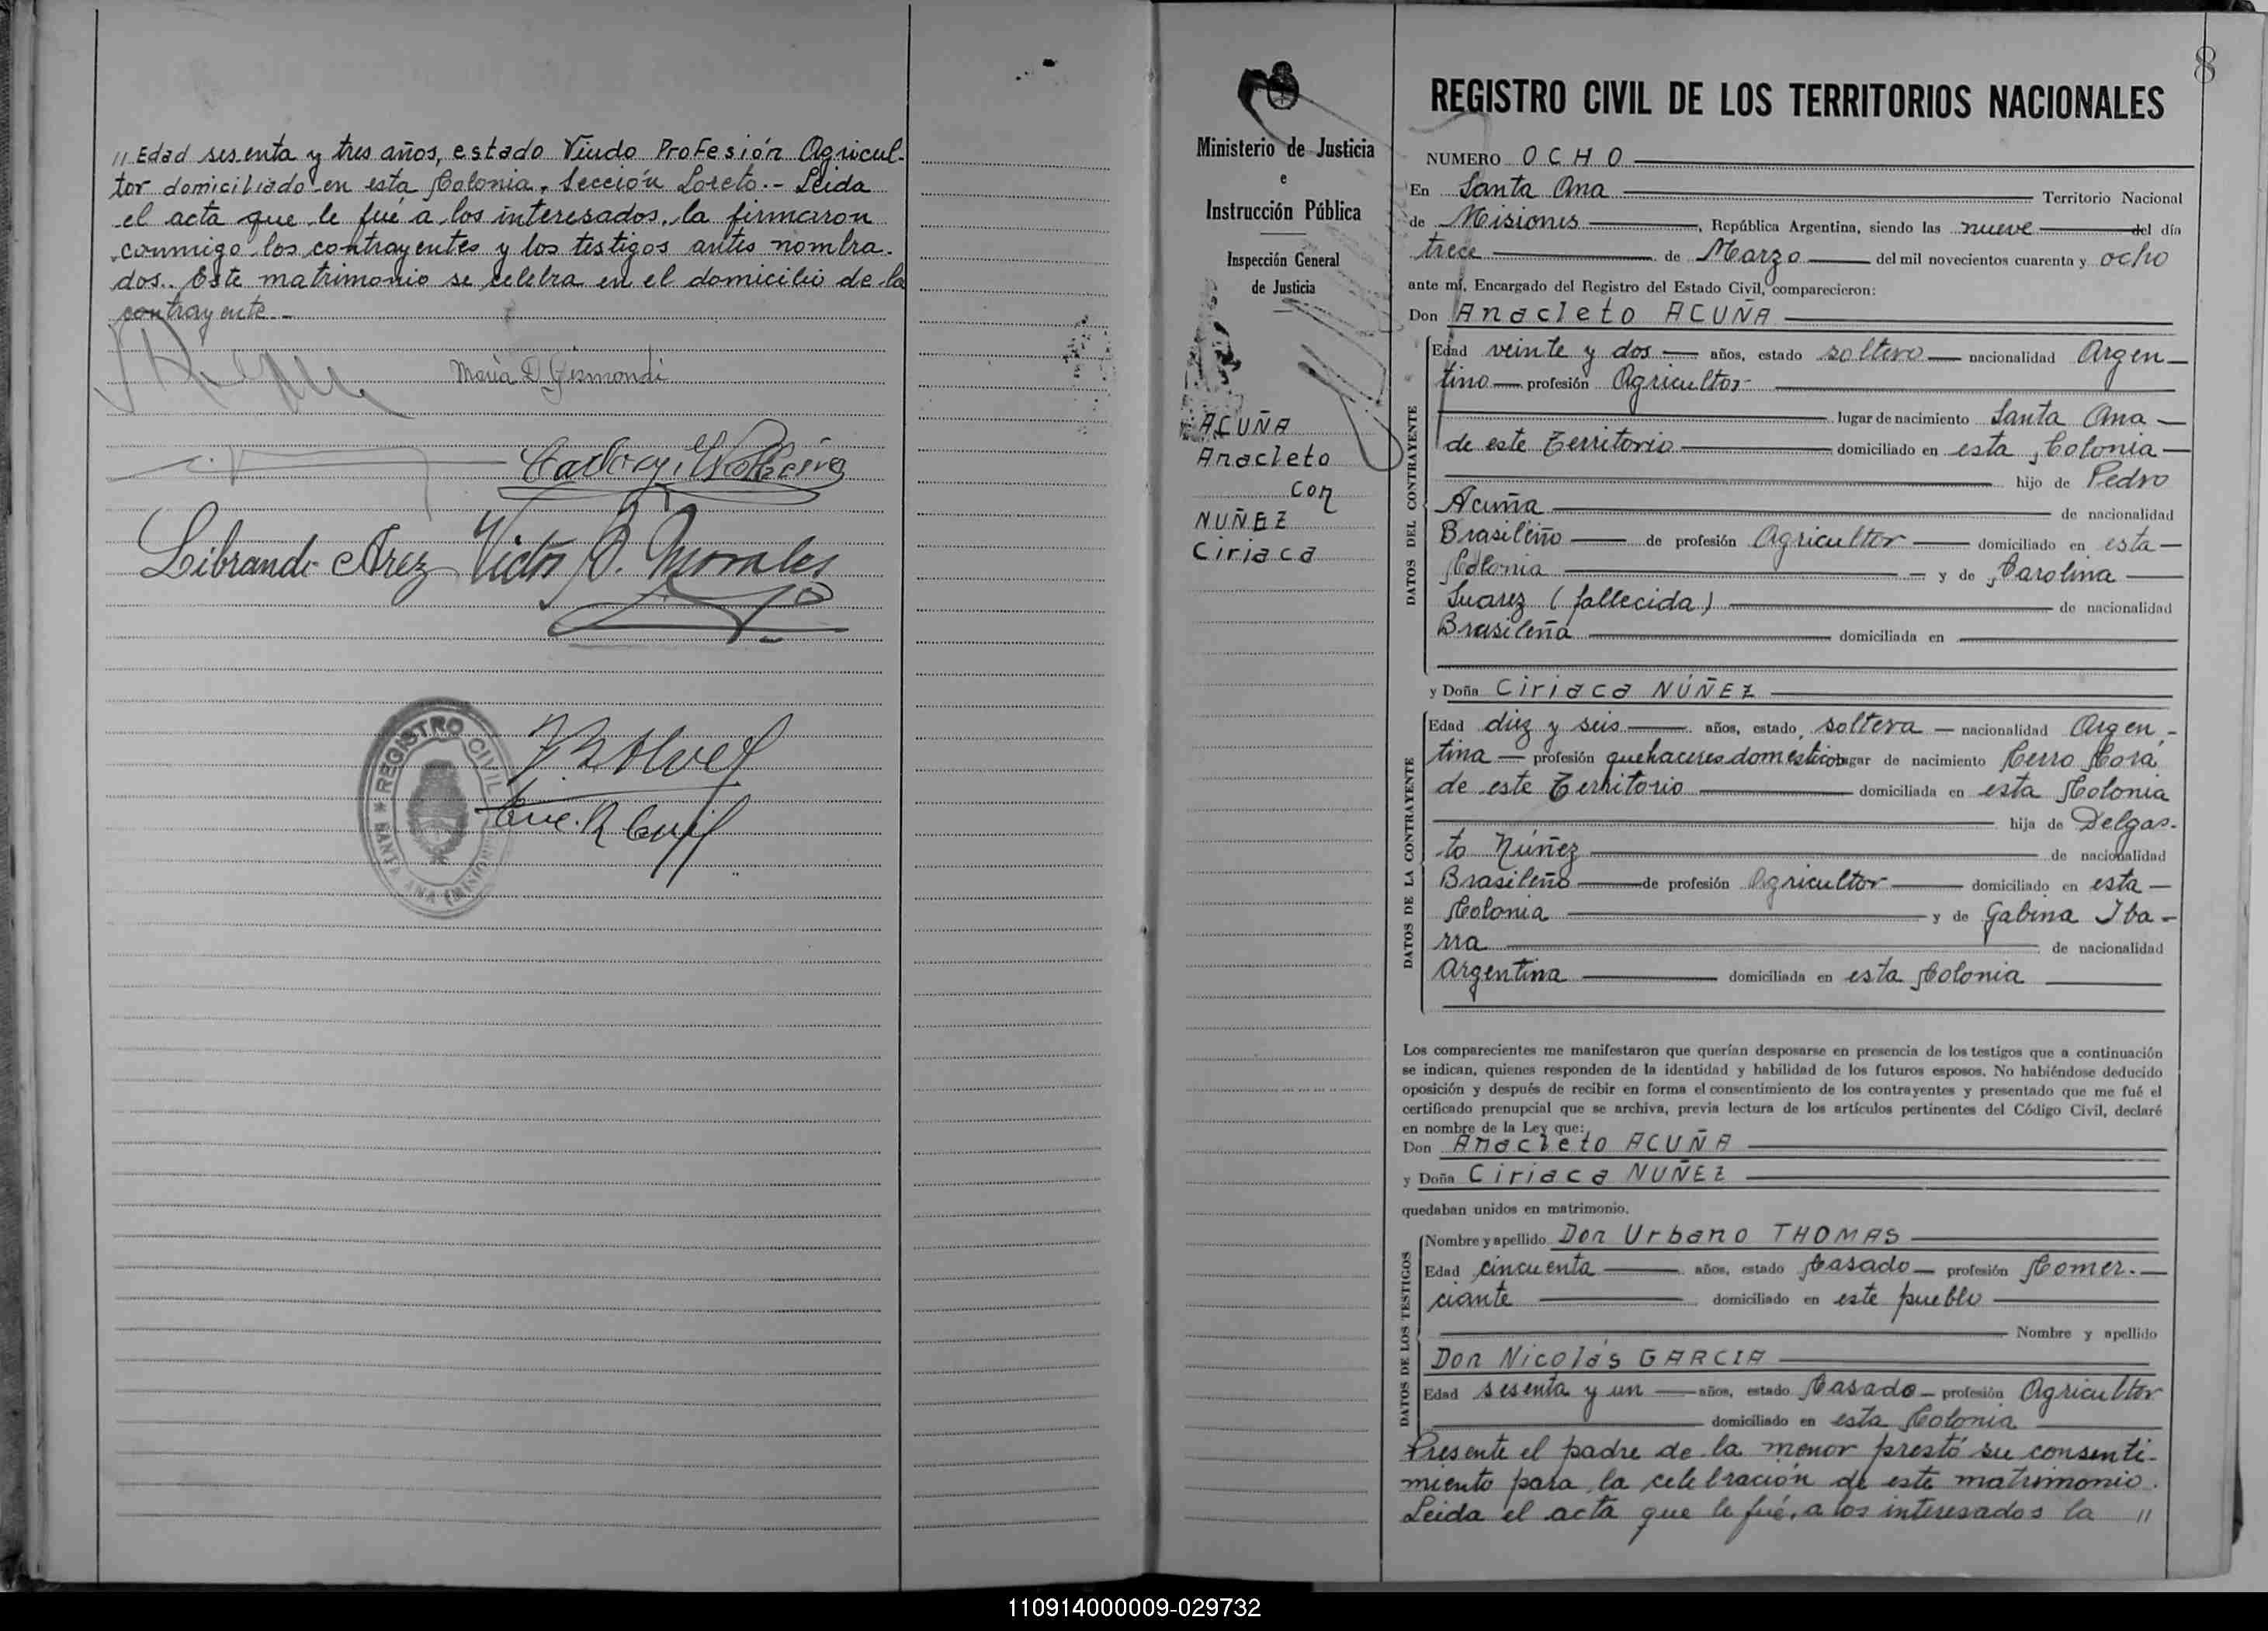 〃 Edad sesenta y tres años, estado Viudo Profesión Agricul-
tor domiciliado en esta Colonia, Sección Loreto.- Leida
el acta que le fué a los interesados, la firmaron
conmigo los contrayentes y los testigos antes nombra-
dos. Este matrimonio se celebra en el domicilio de la
contrayente.-
María D. Gismondi
Librando Arez Victor O. Morales
REGISTRO CIVIL
SANTA ANA (MISIONES)
8
Ministerio de Justicia
e
Instrucción Pública
Inspección General
de Justicia
ACUÑA
Anacleto
con
NUÑEZ
Ciriaca
REGISTRO CIVIL DE LOS TERRITORIOS NACIONALES
NUMERO OCHO
En Santa Ana Territorio Nacional
de Misiones, República Argentina, siendo las nueve del día
trece de Marzo del mil novecientos cuarenta y ocho
ante mí, Encargado del Registro del Estado Civil, comparecieron:
Don Anacleto ACUÑA
DATOS DEL CONTRAYENTE
Edad veinte y dos años, estado soltero nacionalidad Argen-
tino profesión Agricultor
lugar de nacimiento Santa Ana
de este Territorio domiciliado en esta Colonia
hijo de Pedro
Acuña de nacionalidad
Brasileño de profesión Agricultor domiciliado en esta
Colonia y de Carolina
Suarez (fallecida) de nacionalidad
Brasileña domiciliada en
y Doña Ciriaca NÚÑEZ
DATOS DE LA CONTRAYENTE
Edad diez y seis años, estado soltera nacionalidad Argen-
tina profesión quehaceres domésticos lugar de nacimiento Cerro Corá
de este Territorio domiciliada en esta Colonia
hija de Delgas-
to Núñez de nacionalidad
Brasileño de profesión Agricultor domiciliado en esta
Colonia y de Gabina Iba-
rra de nacionalidad
Argentina domiciliada en esta Colonia
Los comparecientes me manifestaron que querían desposarse en presencia de los testigos que a continuación
se indican, quienes responden de la identidad y habilidad de los futuros esposos. No habiéndose deducido
oposición y después de recibir en forma el consentimiento de los contrayentes y presentado que me fué el
certificado prenupcial que se archiva, previa lectura de los artículos pertinentes del Código Civil, declaré
en nombre de la Ley que:
Don Anacleto ACUÑA
y Doña Ciriaca NUÑEZ
quedaban unidos en matrimonio.
DATOS DE LOS TESTIGOS
Nombre y apellido Don Urbano THOMAS
Edad cincuenta años, estado Casado profesión Comer-
ciante domiciliado en este pueblo
Nombre y apellido
Don Nicolás GARCIA
Edad sesenta y un años, estado Casado profesión Agricultor
domiciliado en esta Colonia
Presente el padre de la menor prestó su consenti-
miento para la celebración de este matrimonio.
Leida el acta que le fué, a los interesados la 〃
110914000009-029732